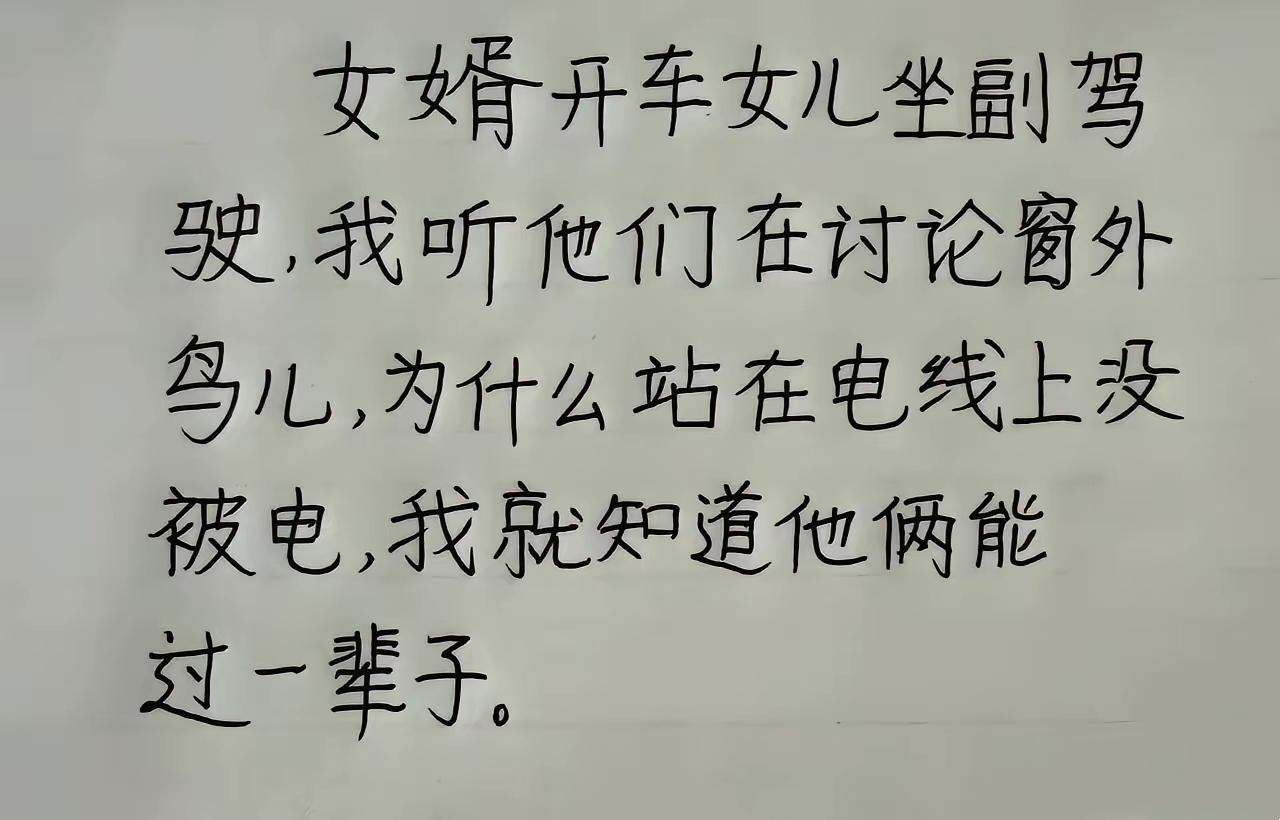 女婿开车女儿坐副驾
驶,我听他们在讨论窗外
鸟儿,为什么站在电线上没
被电,我就知道他俩能
过一辈子。